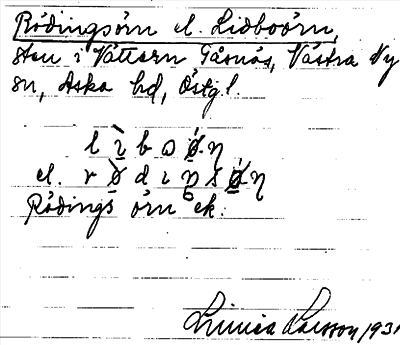 Rödingsörn el. Lidboörn,
sten i Vättern Gåsnäs, Västra Ny
sn, Aska hd, Östg l.
l ì b o ǿ n
el. r ò d ı n s ǿ n
Rödings örn ek.
Linnea Larsson 1931